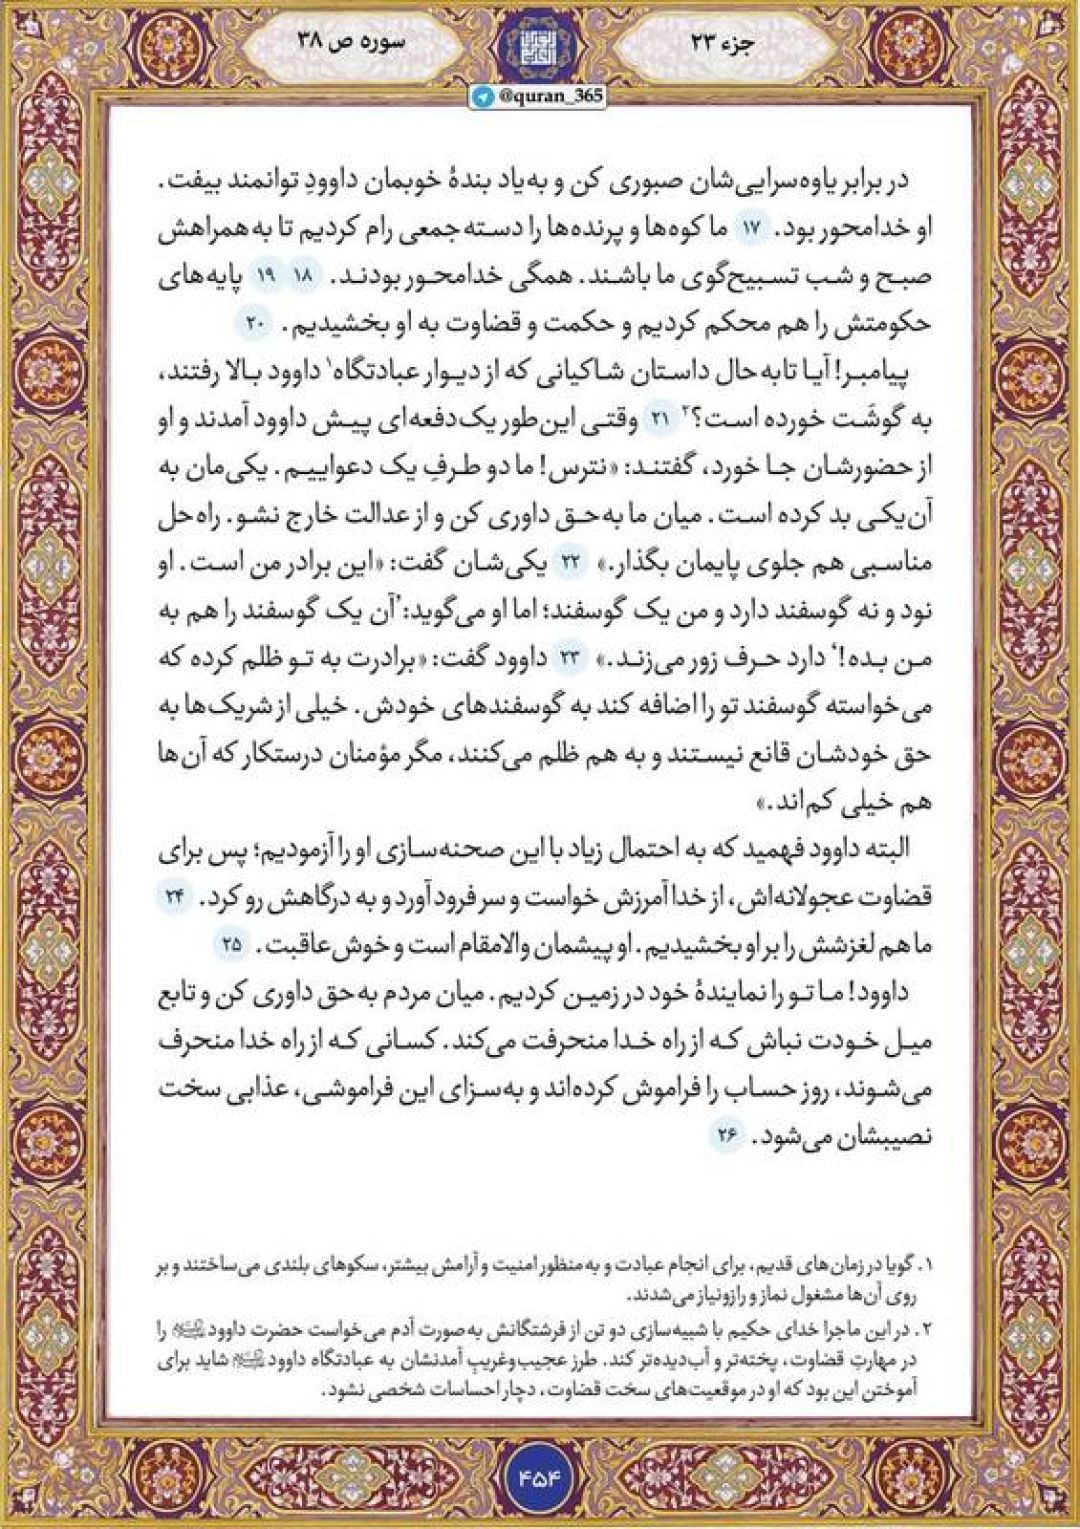 جزء ۲۳
سوره ص ۳۸
@quran_365
در برابر یاوه‌سرایی‌شان صبوری کن و به‌یاد بندهٔ خوبمان داوودِ توانمند بیفت.
او خدامحور بود. ۱۷ ما کوه‌ها و پرنده‌ها را دسته جمعی رام کردیم تا به همراهش
صبح و شب تسبیح‌گوی ما باشند. همگی خدامحور بودند. ۱۸ ۱۹ پایه‌های
حکومتش را هم محکم کردیم و حکمت و قضاوت به او بخشیدیم. ۲۰
پیامبر! آیا تا‌به‌حال داستان شاکیانی که از دیوار عبادتگاه۱ داوود بالا رفتند،
به گوشَت خورده است؟۲ ۲۱ وقتی این‌طور یک‌دفعه‌ای پیش داوود آمدند و او
از حضورشان جا خورد، گفتند: «نترس! ما دو طرفِ یک دعواییم. یکی‌مان به
آن‌یکی بد کرده است. میان ما به‌حق داوری کن و از عدالت خارج نشو. راه‌حل
مناسبی هم جلوی پایمان بگذار.» ۲۲ یکی‌شان گفت: «این برادر من است. او
نود و نه گوسفند دارد و من یک گوسفند؛ اما او می‌گوید: ’آن یک گوسفند را هم به
من بده!‘ دارد حرف زور می‌زند.» ۲۳ داوود گفت: «برادرت به تو ظلم کرده که
می‌خواسته گوسفند تو را اضافه کند به گوسفندهای خودش. خیلی از شریک‌ها به
حق خودشان قانع نیستند و به هم ظلم می‌کنند، مگر مؤمنان درستکار که آن‌ها
هم خیلی کم‌اند.»
البته داوود فهمید که به احتمال زیاد با این صحنه‌سازی او را آزمودیم؛ پس برای
قضاوت عجولانه‌اش، از خدا آمرزش خواست و سر فرود آورد و به درگاهش رو کرد. ۲۴
ما هم لغزشش را بر او بخشیدیم. او پیشمان والامقام است و خوش‌عاقبت. ۲۵
داوود! ما تو را نمایندهٔ خود در زمین کردیم. میان مردم به‌حق داوری کن و تابع
میل خودت نباش که از راه خدا منحرفت می‌کند. کسانی که از راه خدا منحرف
می‌شوند، روز حساب را فراموش کرده‌اند و به‌سزای این فراموشی، عذابی سخت
نصیبشان می‌شود. ۲۶
۱. گویا در زمان‌های قدیم، برای انجام عبادت و به‌منظور امنیت و آرامش بیشتر، سکوهای بلندی می‌ساختند و بر
روی آن‌ها مشغول نماز و رازونیاز می‌شدند.
۲. در این ماجرا خدای حکیم با شبیه‌سازی دو تن از فرشتگانش به‌صورت آدم می‌خواست حضرت داوود را
در مهارتِ قضاوت، پخته‌تر و آب‌دیده‌تر کند. طرز عجیب‌وغریبِ آمدنشان به عبادتگاه داوود شاید برای
آموختن این بود که او در موقعیت‌های سخت قضاوت، دچار احساسات شخصی نشود.
۴۵۴